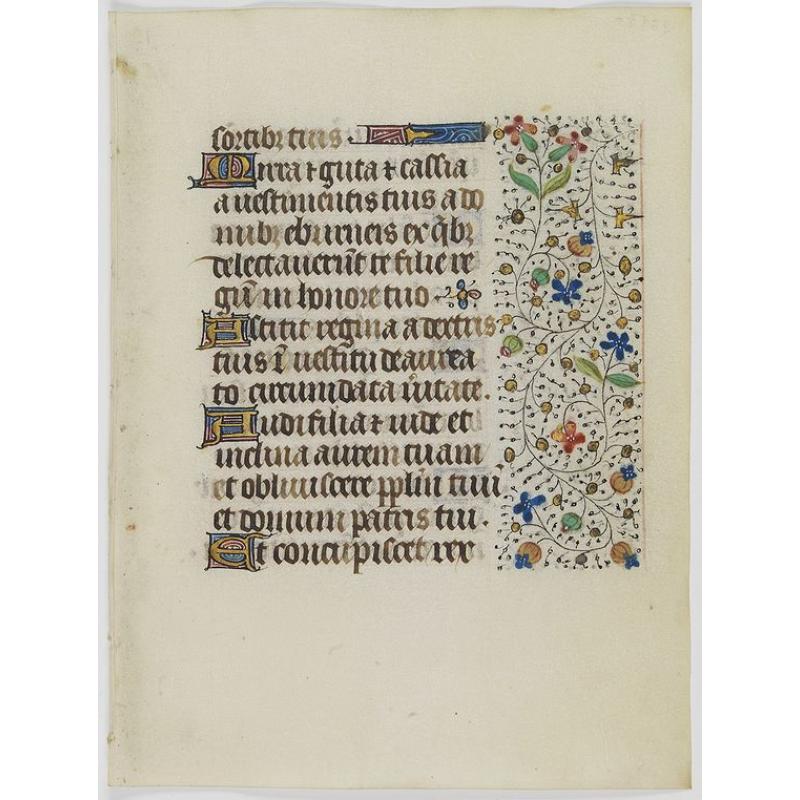 sortibꝫ tuis
Mirra ⁊ guta ⁊ cassia
a uestimentis tuis a do
mibꝫ eburneis ex q̃bꝫ
delectauerũt te filie re
gũ in honore tuo
Astitit regina a dextris
tuis ĩ uestitu deaurea
to circumdata ũitate.
Audi filia ⁊ uide et
inclina aurem tuam
et obliuiscere pplm̃ tuũ
et domum patris tui.
Et concupiscet rex